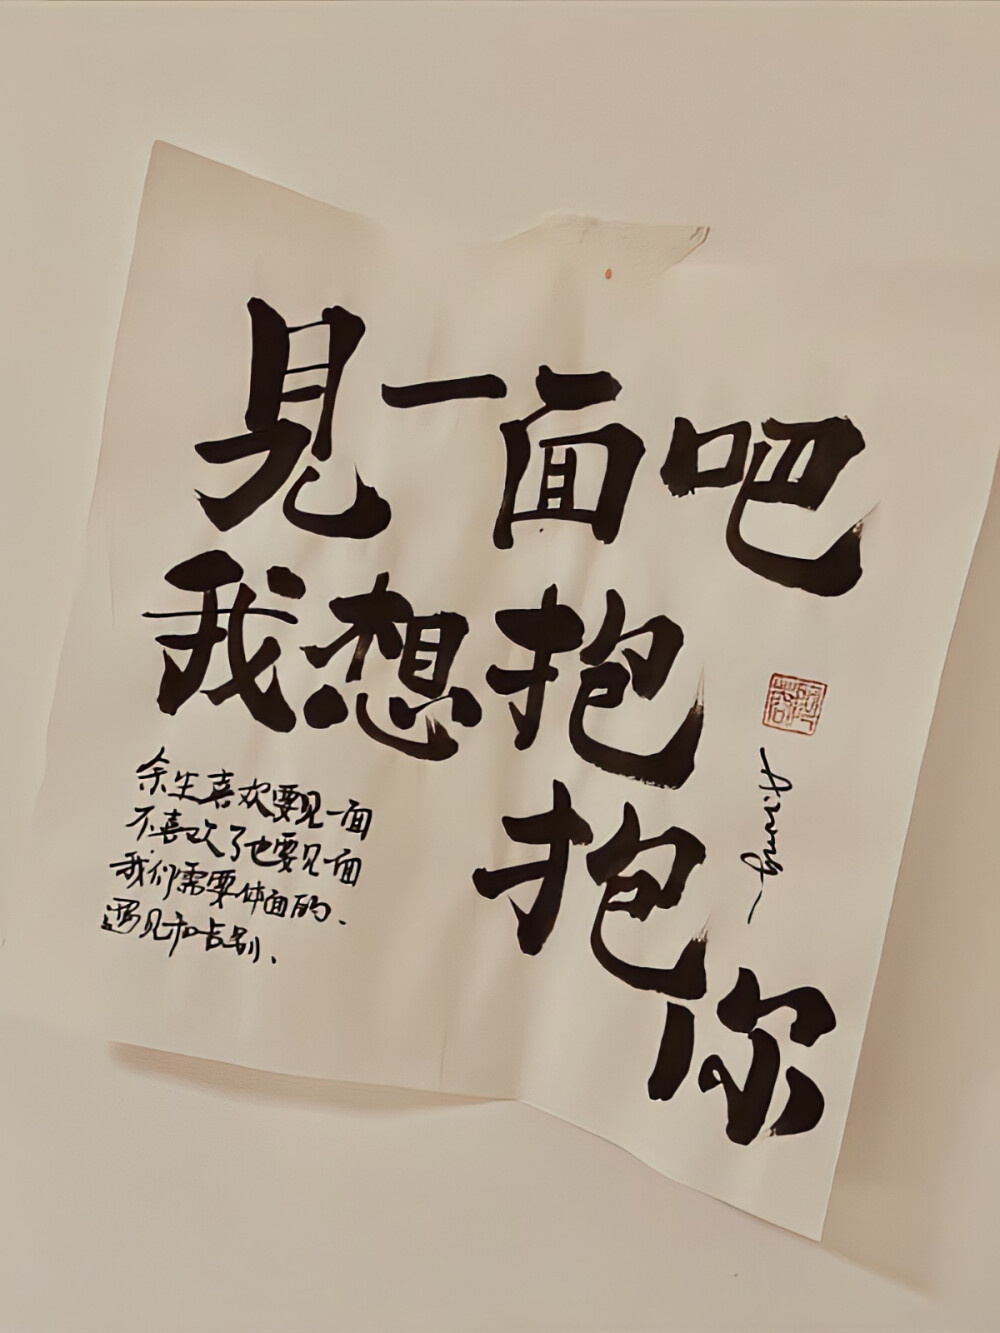 见一面吧
我想抱
抱
你
余生喜欢要见一面
不喜欢了也要见一面
我们需要体面的、
遇见和告别、